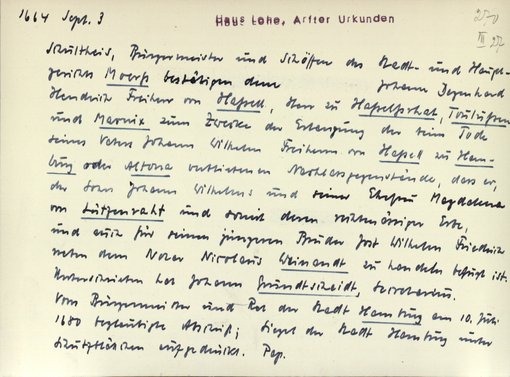 1664 Sept. 3
Haus Lohe, Arfter Urkunden
250
III 27
Schultheis, Bürgermeister und Schöffen des Stadt- und Haupt-
gerichts Moerß bestätigen dem Johann Degenhard
Hendrich Freiherr von Hassell, Herr zu
und Marnix zum Zwecke der Erlangung der beim Tode
seines Vaters Johann Wilhelm Freiherrn von Hassell zu Ham-
burg oder Altona verbliebenen Nachlassgegenstände, dass er,
der Sohn Johann Wilhelms und seiner Ehefrau Magdalena
von Lützenraht und somit deren rechtmässiger Erbe,
und auch für seinen jüngeren Bruder Jost Wilhelm Friedrich
neben dem Notar Nicolaus Weinandt zu handeln befugt ist.
Unterschrieben hat Johann Grundtscheidt, Secretarius.
Vom Bürgermeister und Rat der Stadt Hamburg am 10. Juli
1680 beglaubigte Abschrift; Siegel der Stadt Hamburg unter
aufgedrückt. Pap.